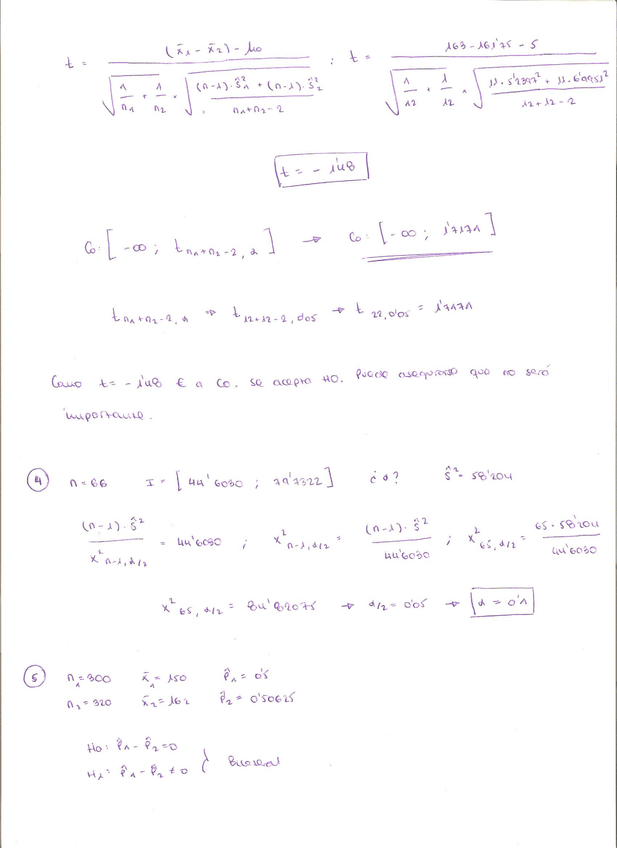 t = ((x̄1 - x̄2) - μo) / (√(1/n1 + 1/n2) · √(((n-1)·ŝ1² + (n-1)·ŝ2²) / (n1+n2-2))) ; t = (163 - 161'75 - 5) / (√(1/12 + 1/12) · √((11·5'2397² + 11·6'9951²) / (12+12-2)))
t = - 1'48
Co: [-∞ ; t n1+n2-2, α] → Co: [-∞ ; 1'7171]
t n1+n2-2, α → t 12+12-2, 0'05 → t 22, 0'05 = 1'7171
Como t = - 1'48 € a Co. Se acepta H0. Puede asegurarse que no será
importante.
4 n = 66 I = [44'6030 ; 79'7322] ¿α? ŝ² = 58'204
((n-1)·ŝ²) / (x² n-1, α/2) = 44'6030 ; x² n-1, α/2 = ((n-1)·ŝ²) / 44'6030 ; x² 65, α/2 = (65·58'204) / 44'6030
x² 65, α/2 = 84'82075 → α/2 = 0'05 → α = 0'1
5 n1 = 300 x̄1 = 150 p̂1 = 0'5
n2 = 320 x̄2 = 162 p̂2 = 0'50625
Ho: p̂1 - p̂2 = 0
H1: p̂1 - p̂2 ≠ 0 } Bilateral